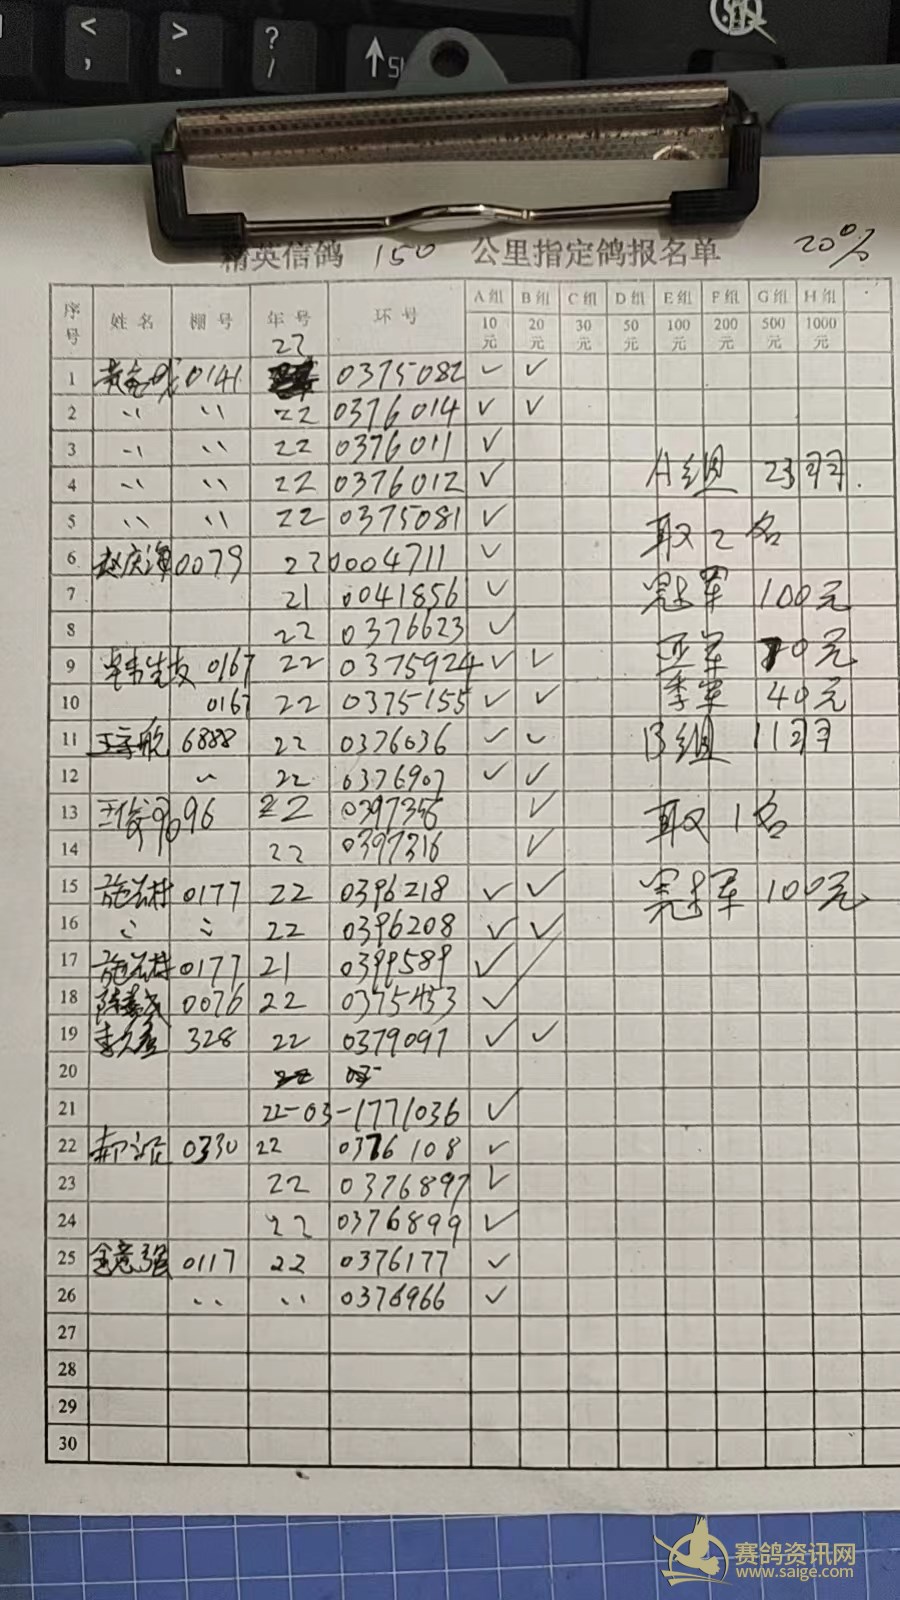 精英信鸽 150 公里指定鸽报名单 20%
序号 姓名 棚号 年号 环号 A组 B组 C组 D组 E组 F组 G组 H组
10元 20元 30元 50元 100元 200元 500元 1000元
22
1 0141 0375082 ✓ ✓
2 〃 〃 22 0376014 ✓ ✓
3 〃 〃 22 0376011 ✓
4 〃 〃 22 0376012 ✓ A组 23羽.
5 〃 〃 22 0375081 ✓ 取2名
6 赵庆海 0079 22 0004711 ✓
7 21 0041856 ✓ 冠军 100元
8 22 0376623 ✓
9 0167 22 0375924 ✓ ✓ 亚军 70元
10 0167 22 0375155 ✓ ✓ 季军 40元
11 王宇航 6888 22 0376036 ✓ ✓ B组 11羽
12 〃 22 0376907 ✓ ✓
13 王俊 9696 22 0397356 ✓ 取1名
14 22 0397316 ✓
15 施兰村 0177 22 0396218 ✓ ✓ 冠军 100元
16 〃 〃 22 0396208 ✓ ✓
17 施兰村 0177 21 0399589 ✓
18 0076 22 0375453 ✓
19 328 22 0379097 ✓ ✓
20
21 22-03-1771036 ✓
22 0330 22 0376108 ✓
23 22 0376897 ✓
24 22 0376899 ✓
25 金意强 0117 22 0376177 ✓
26 〃 〃 0376966 ✓
27
28
29
30
赛鸽资讯网
www.saige.com